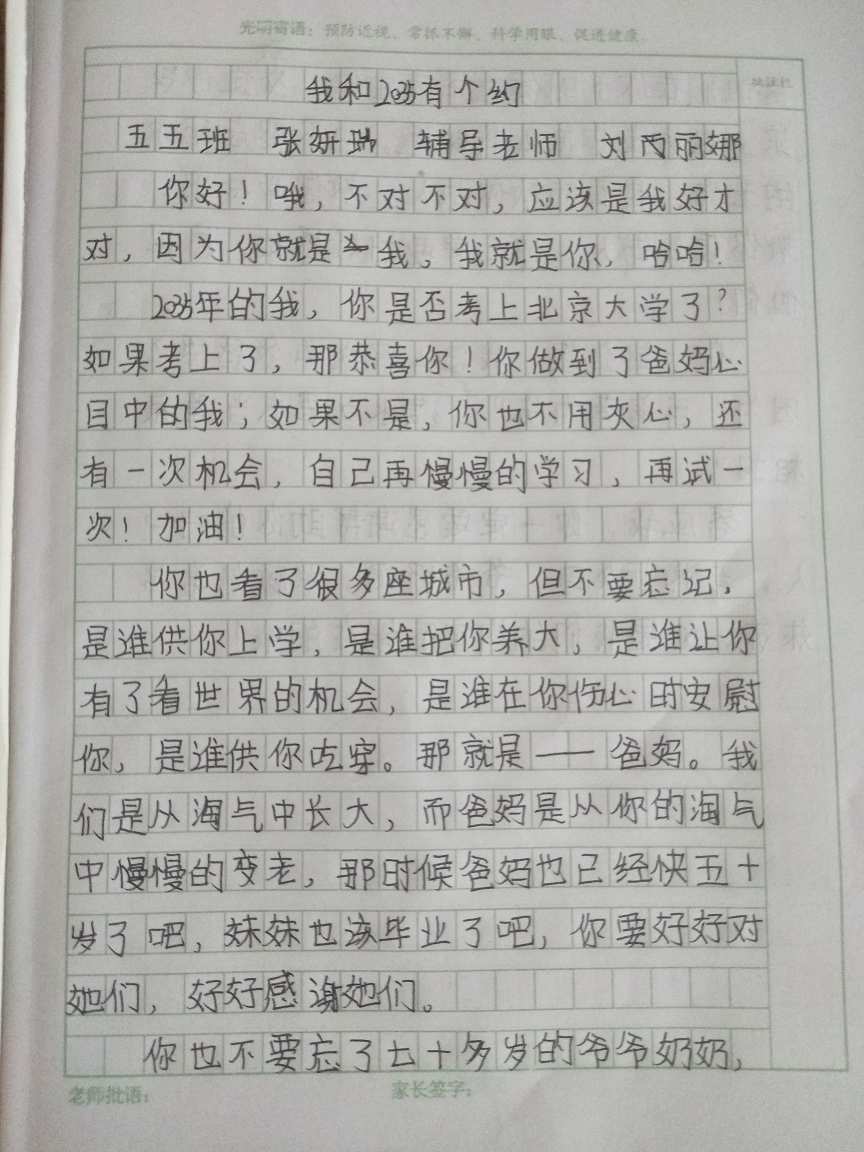 光明寄语：预防近视、常抓不懈、科学用眼、促进健康。
我和2035有个约
五五班 张妍瑞 辅导老师 刘丙丽娜
你好！哦，不对不对，应该是我好才
对，因为你就是我，我就是你，哈哈！
2035年的我，你是否考上北京大学了？
如果考上了，那恭喜你！你做到了爸妈心
目中的我；如果不是，你也不用灰心，还
有一次机会，自己再慢慢的学习，再试一
次！加油！
你也看了很多座城市，但不要忘记，
是谁供你上学，是谁把你养大，是谁让你
有了看世界的机会，是谁在你伤心时安慰
你，是谁供你吃穿。那就是——爸妈。我
们是从淘气中长大，而爸妈是从你的淘气
中慢慢的变老，那时候爸妈也已经快五十
岁了吧，妹妹也该毕业了吧，你要好好对
她们，好好感谢她们。
你也不要忘了七十多岁的爷爷奶奶，
老师批语：
家长签字：